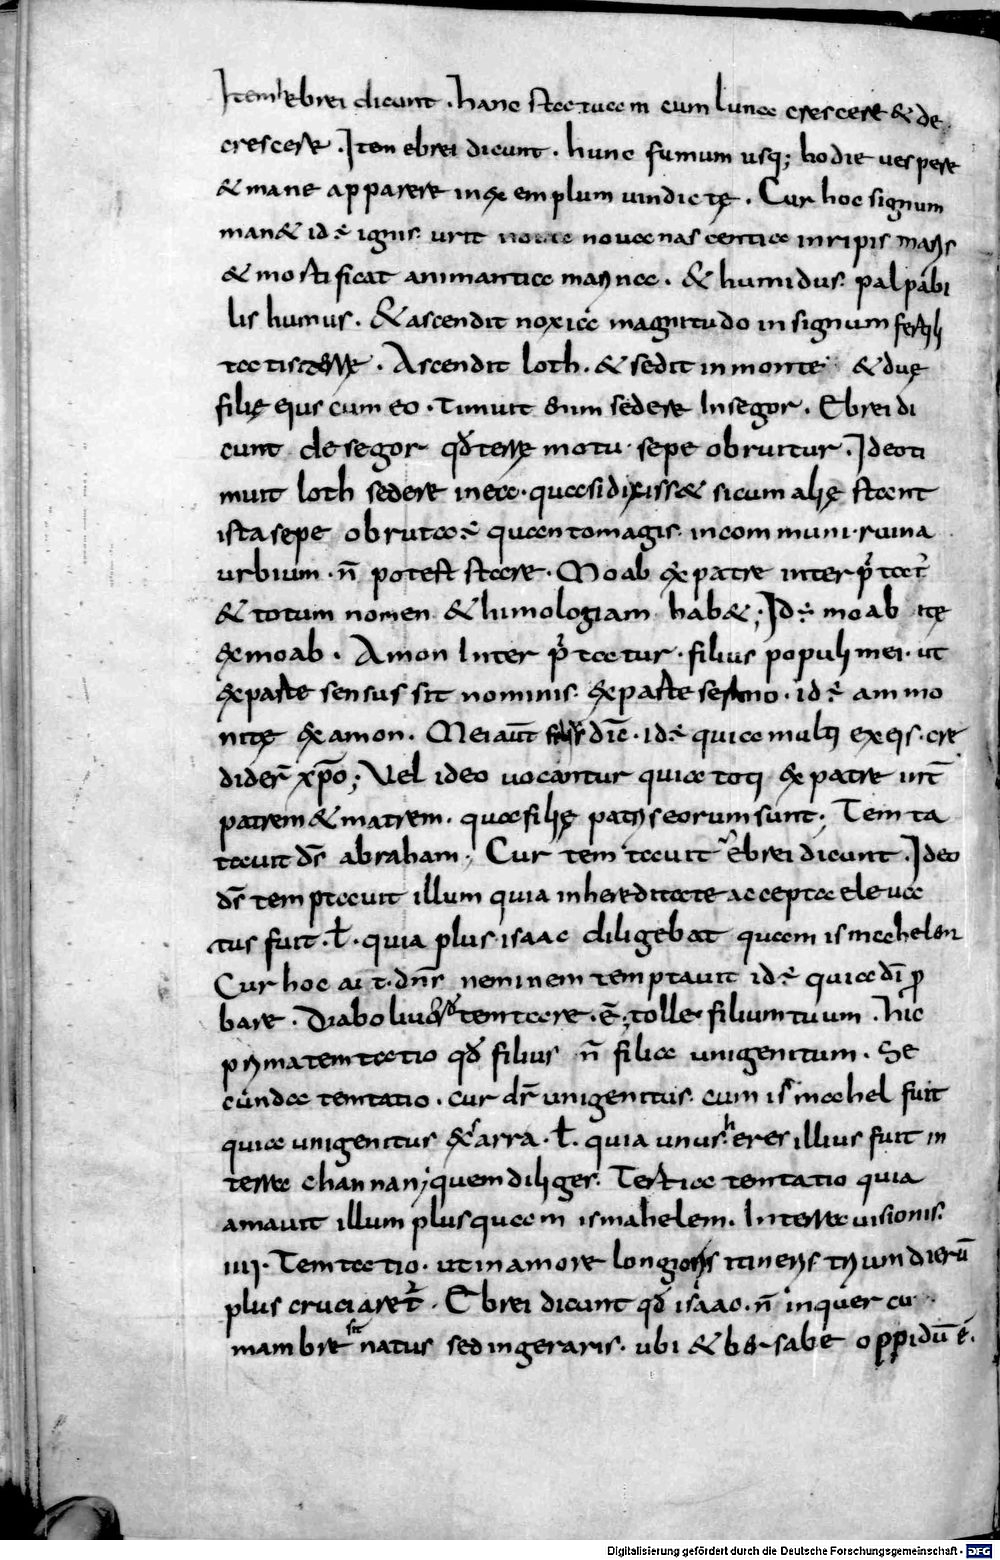 Item hebrei dicunt . hanc statuam cum luna crescere & de
crescere . Item ebrei dicunt . hunc fumum usq; hodie uespere
& mane apparere in exemplum uindictę . Cur hoc signum
man& id ē ignis urit noua nascentia in ripis maris
& mortificat animantia marina . & humidus palpabi
lis humus . & ascendit noxia magnitudo in signum fertili
tatis terrę . Ascendit loth . & sedit in monte & duę
filię eius cum eo . Timuit enim sedere In segor . Ebrei di
cunt de segor qđ terrę motu sepe obruitur . Ideo ti
muit loth sedere in ea . quasi dixiss& si cum alię stant
ista sepe obruta ē quanto magis in communi ruina
urbium . n̄ potest stare . Moab ex patre interp̄tat̄
& totum nomen &himologiam hab& ; Id ē moab itę
ex moab . Amon Inter p̄tatur . filius populi mei . ut
ex parte sensus sit nominis ex parte sermo . id ē ammo
nitę ex amon . Mei aūt dic̄ . id ē quia multi ex eis . cre
dider̄ xp̄o ; Vel ideo uocantur quia toti ex patre urt̄
patrem & matrem . qua filię patris eorum sunt ; Temta
tauit d̄s abraham ; Cur temtauit ebrei dicunt . Ideo
d̄s temptauit illum quia in hereditate accepta eleua
tus fuit . ł . quia plus isaac diligebat quam ismahelem
Cur hoc ait . dn̄s neminem temptauit id ē quia dī p̄
bare . Diaboli u temtare . ē ; tolle filium tuum . hic
prima temtatio qđ filius n̄ filia unigenitum . Se
cunda temtatio . cur dr̄ unigenitus cum ismahel fuit
quia unigenitus ex sarra . ł . quia unus heres illius fuit in
terra channan ; quem diliges . Tertia temtatio quia
amauit illum plus quam ismahelem . In terra uisionis
IIII . Temtatio . ut in amore longioris itineris trium dierū
plus cruciaret̄ . Ebrei dicunt qđ isaac . n̄ in quercu
mambre sit natus sed in geraris . ubi & bersabe oppidū ē .
Digitalisierung gefördert durch die Deutsche Forschungsgemeinschaft - DFG